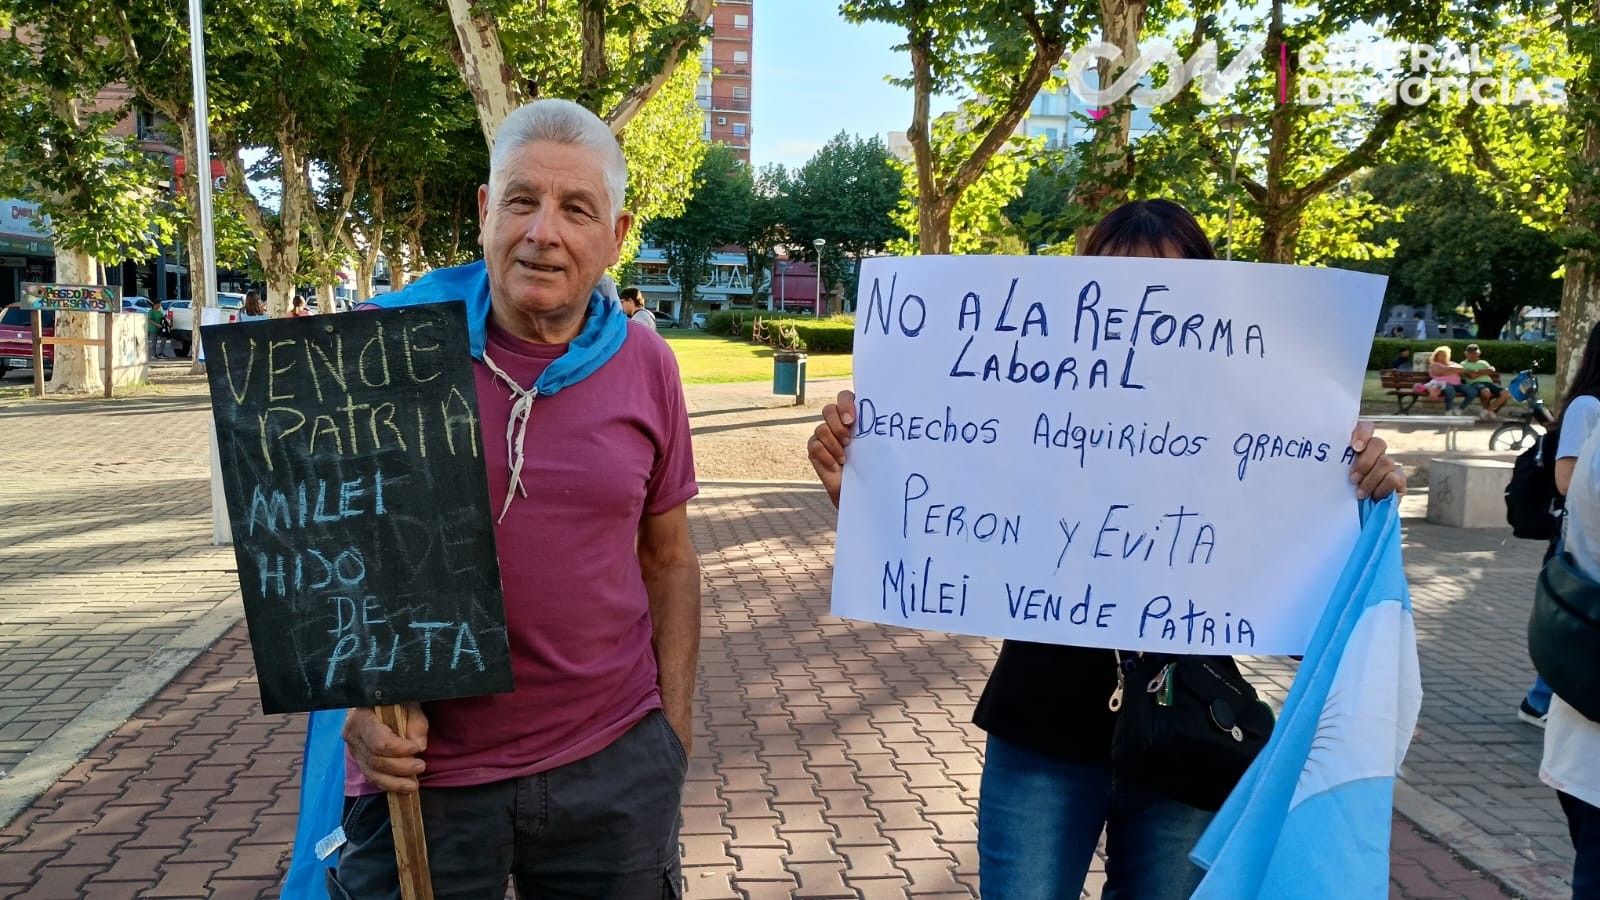 CDN
CENTRAL
DE NOTICIAS
PASEO DE
ARTESANOS
VENDE
PATRIA
MILEI
HIJO
DE
PUTA
NO A LA REFORMA
LABORAL
DERECHOS ADQUIRIDOS GRACIAS A
PERON Y EVITA
MILEI VENDE PATRIA